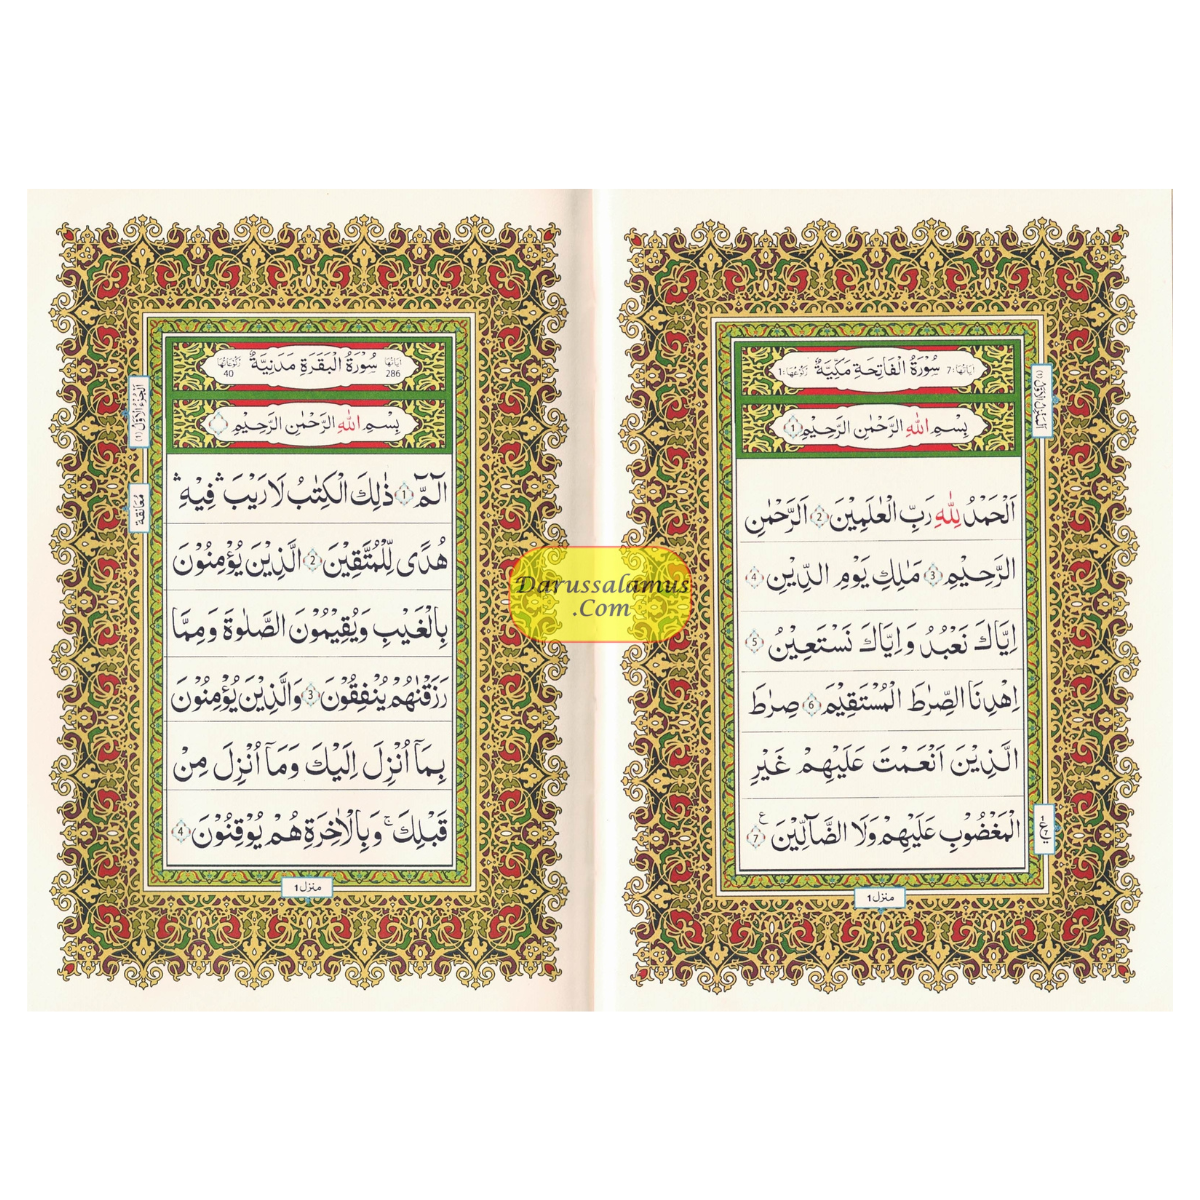 سُوْرَةُ الْفَاتِحَةِ مَكِّيَّةٌ
اٰيَاتُهَا: 7
رُكُوْعُهَا: 1
بِسْمِ اللّٰهِ الرَّحْمٰنِ الرَّحِيْمِ 1
اَلْحَمْدُ لِلّٰهِ رَبِّ الْعٰلَمِيْنَ 2 الرَّحْمٰنِ
الرَّحِيْمِ 3 مٰلِكِ يَوْمِ الدِّيْنِ 4
اِيَّاكَ نَعْبُدُ وَاِيَّاكَ نَسْتَعِيْنُ 5
اِهْدِنَا الصِّرٰطَ الْمُسْتَقِيْمَ 6 صِرٰطَ
الَّذِيْنَ اَنْعَمْتَ عَلَيْهِمْ غَيْرِ
الْمَغْضُوْبِ عَلَيْهِمْ وَلَا الضَّآلِّيْنَ 7 ع
منزل 1
سُوْرَةُ الْبَقَرَةِ مَدَنِيَّةٌ
اٰيَاتُهَا 286
رُكُوْعَاتُهَا 40
اَلْجُزْءُ الْاَوَّلُ (1)
بِسْمِ اللّٰهِ الرَّحْمٰنِ الرَّحِيْمِ
مُعَانَقَة
الٓمّٓ 1 ذٰلِكَ الْكِتٰبُ لَا رَيْبَ ۛ فِيْهِ ۛ
هُدًى لِّلْمُتَّقِيْنَ 2 الَّذِيْنَ يُؤْمِنُوْنَ
بِالْغَيْبِ وَيُقِيْمُوْنَ الصَّلٰوةَ وَمِمَّا
رَزَقْنٰهُمْ يُنْفِقُوْنَ 3 وَالَّذِيْنَ يُؤْمِنُوْنَ
بِمَآ اُنْزِلَ اِلَيْكَ وَمَآ اُنْزِلَ مِنْ
قَبْلِكَ ۚ وَبِالْاٰخِرَةِ هُمْ يُوْقِنُوْنَ 4
منزل 1
Darussalamus
.Com